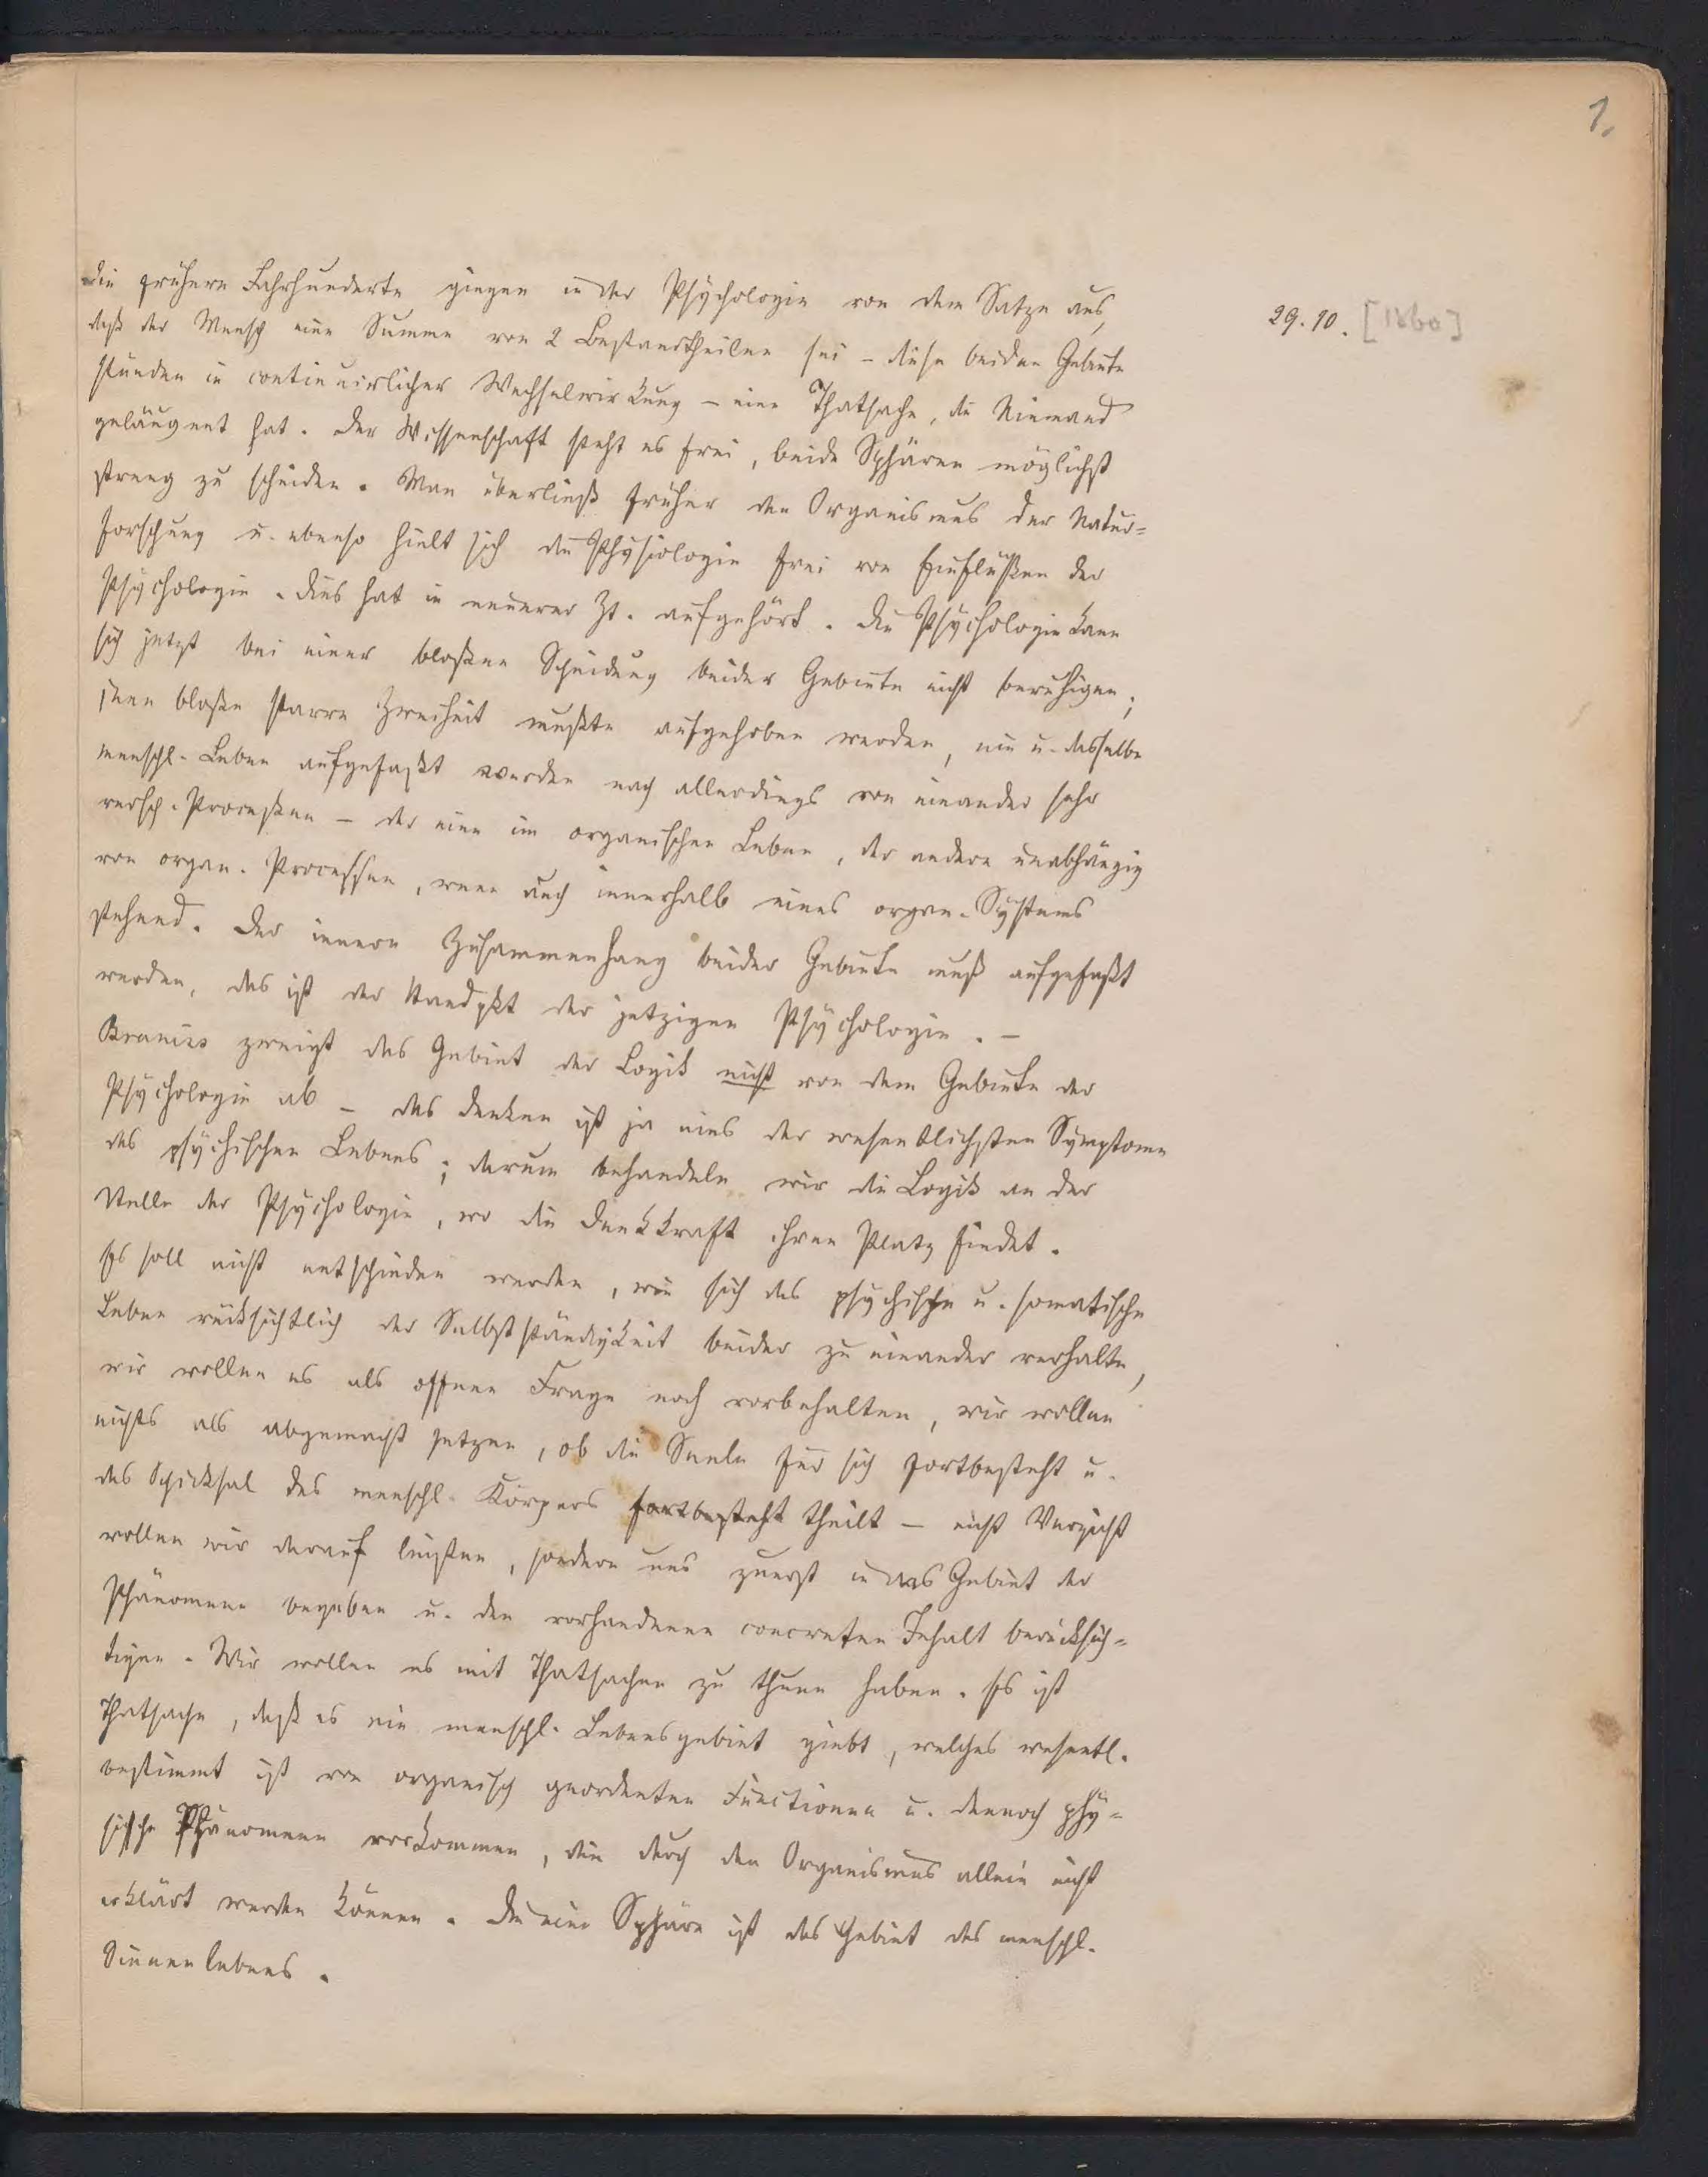 1.
29.10. [1860]
Die frühern Jahrhunderte gingen in der Psychologie von dem Satze aus,
daß der Mensch eine Summe von 2 Bestandtheilen sei – diese beiden Gebiete
stünden in continuirlicher Wechselwirkung – eine Thatsache, die Niemand
geläugnet hat. Der Wissenschaft steht es frei, beide Sphären möglichst
streng zu scheiden. Man überließ früher den Organismus der Natur=
forschung u. ebenso hielt sich die Physiologie frei von Einflüßen der
Psychologie. Dies hat in neuerer Zt. aufgehört. Die Psychologie kann
sich jetzt bei einer bloßen Scheidung beider Gebiete nicht beruhigen;
jene bloße starre Zweiheit mußte aufgehoben werden, ein u. dasselbe
menschl. Leben aufgefaßt werden nach allerdings von einander sehr
versch. Proceßen – der eine im organischen Leben, der andere unabhängig
von organ. Processen, wenn auch innerhalb eines organ. Systems
stehend. Der innere Zusammenhang beider Gebiete muß aufgefaßt
werden, das ist der Standpkt der jetzigen Psychologie. –
Braniss zweigt das Gebiet der Logik nicht von dem Gebiete der
Psychologie ab – das Denken ist ja eins der wesentlichsten Symptome
des psychischen Lebens; darum behandeln wir die Logik an der
Stelle der Psychologie, wo die Denkkraft ihren Platz findet.
Es soll nicht entschieden werden, wie sich das psychische u. somatische
Leben rücksichtlich der Selbstständigkeit beider zu einander verhalte,
wir wollen es als offene Frage noch vorbehalten, wir wollen
nichts als abgemacht setzen, ob die Seele für sich fortbesteht u.
das Schicksal des menschl. Körpers fortbesteht theilt – nicht Verzicht
wollen wir darauf leisten, sondern uns zuerst in das Gebiet der
Phänomene begeben u. den vorhandenen concreten Inhalt berücksich=
tigen. Wir wollen es mit Thatsachen zu thun haben. Es ist
Thatsache, daß es ein menschl. Lebensgebiet giebt, welches wesentl.
bestimmt ist von organisch geordneten Functionen u. dennoch phy=
sische Phänomene vorkommen, die durch den Organismus allein nicht
erklärt werden können. Die eine Sphäre ist das Gebiet des menschl.
Sinnenlebens.